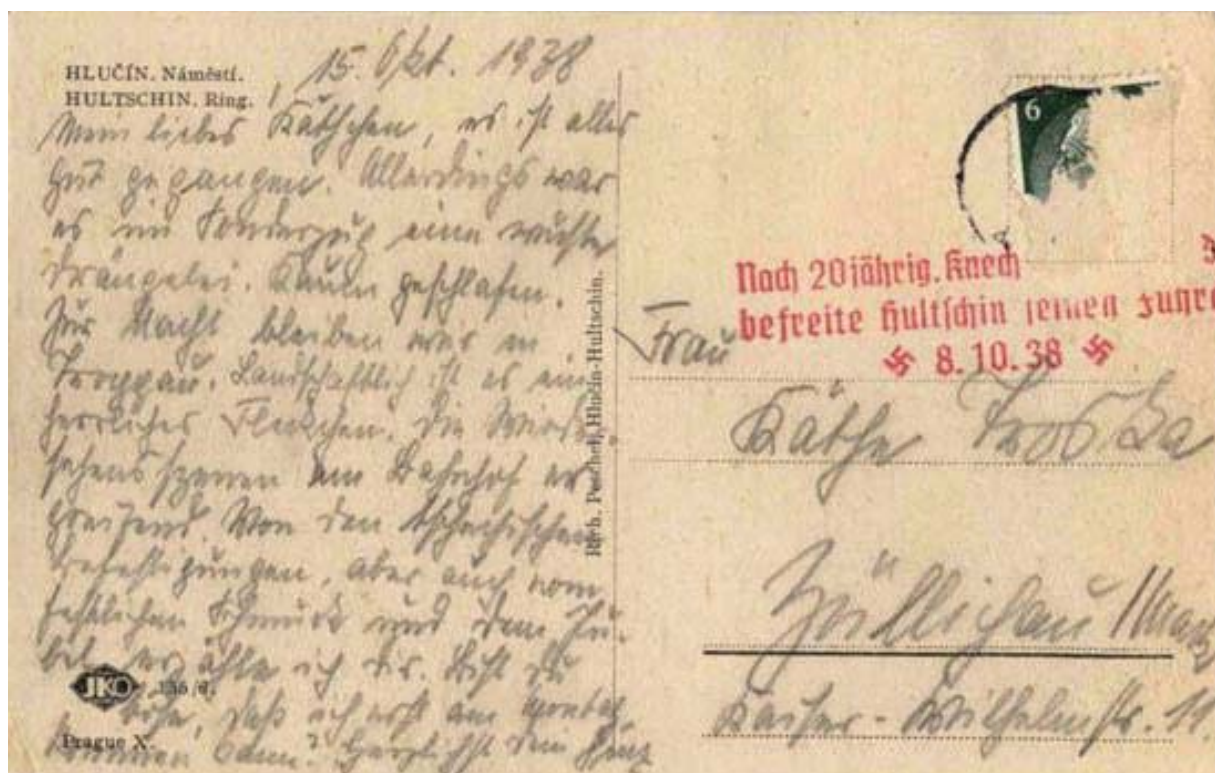 HLUČÍN. Náměstí.
HULTSCHIN. Ring.
15. Okt. 1938
Mein liebes Käthchen, es ist alles
gut gegangen. Allerdings war
es im Sonderzug eine wüste
Drängelei. Kaum geschlafen.
Zur Nacht bleiben wir in
Troppau. Landschaftlich ist es ein
herrliches Fleckchen. Die Wieder-
sehensszenen am Bahnhof er-
greifend. Von den tschechischen
Befestigungen, aber auch vom
festlichen Schmuck und dem Ju-
bel erzähle ich dir. Bist du
böse, daß ich erst am Montag
kommen kann? Herzlichst dein
JKO
Prague X.
Rich. Peschel, Hlučín-Hultschin.
6
Nach 20jährig. Knech
befreite Hultschin seinen Führe
8.10.38
Frau
Käthe
Züllichau
Kaiser-Wilhelmstr. 11